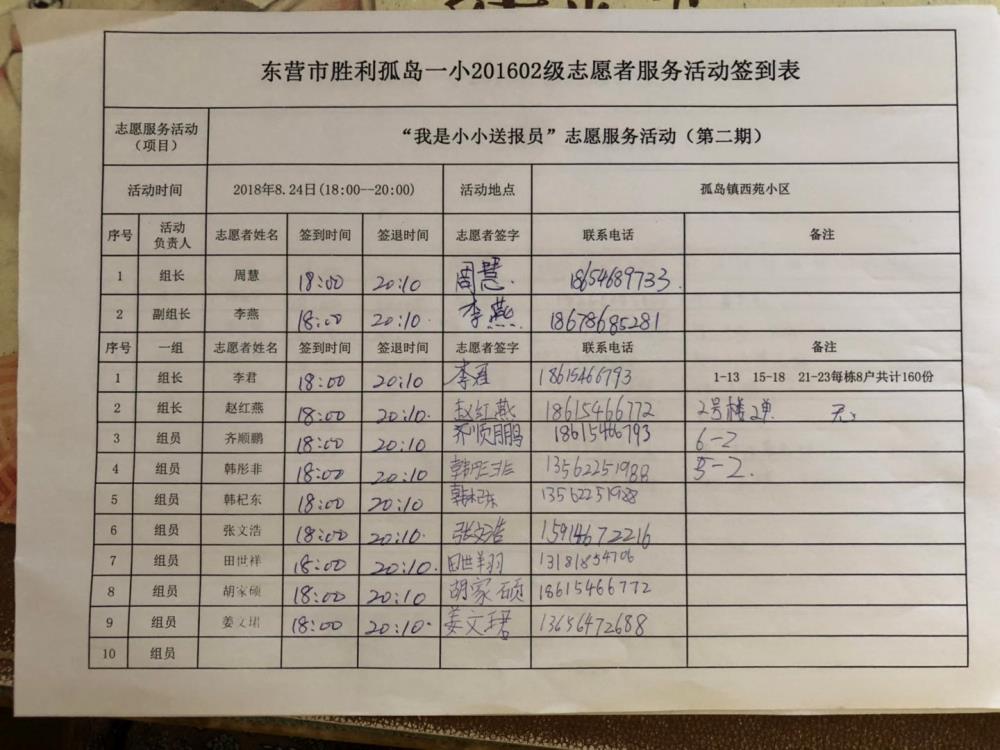 东营市胜利孤岛一小201602级志愿者服务活动签到表
志愿服务活动（项目） “我是小小送报员”志愿服务活动（第二期）
活动时间 2018年8.24日(18:00--20:00) 活动地点 孤岛镇西苑小区
序号 活动负责人 志愿者姓名 签到时间 签退时间 志愿者签字 联系电话 备注
1 组长 周慧 18:00 20:10 周慧. 18654689733.
2 副组长 李燕 18:00 20:10. 李燕. 18678685281
序号 一组 志愿者姓名 签到时间 签退时间 志愿者签字 联系电话 备注
1 组长 李君 18:00 20:10 李君 18615466793 1-13 15-18 21-23每栋8户共计160份
2 组长 赵红燕 18:00 20:10. 赵红燕 18615466772 2号楼2单
3 组员 齐顺鹏 18:00 20:10 齐顺鹏 18615466793 6-2
4 组员 韩彤非 18:00 20:10 韩彤非 13562251988 5-2.
5 组员 韩杞东 18:00 20:10 韩杞东 13562251988
6 组员 张文浩 18:00 20:10. 张文浩 15914672216
7 组员 田世祥 18:00 20:10. 田世翔 13181854706
8 组员 胡家硕 18:00 20:10 胡家硕 18615466772
9 组员 姜文珺 18:00 20:10. 姜文珺 13656472688
10 组员